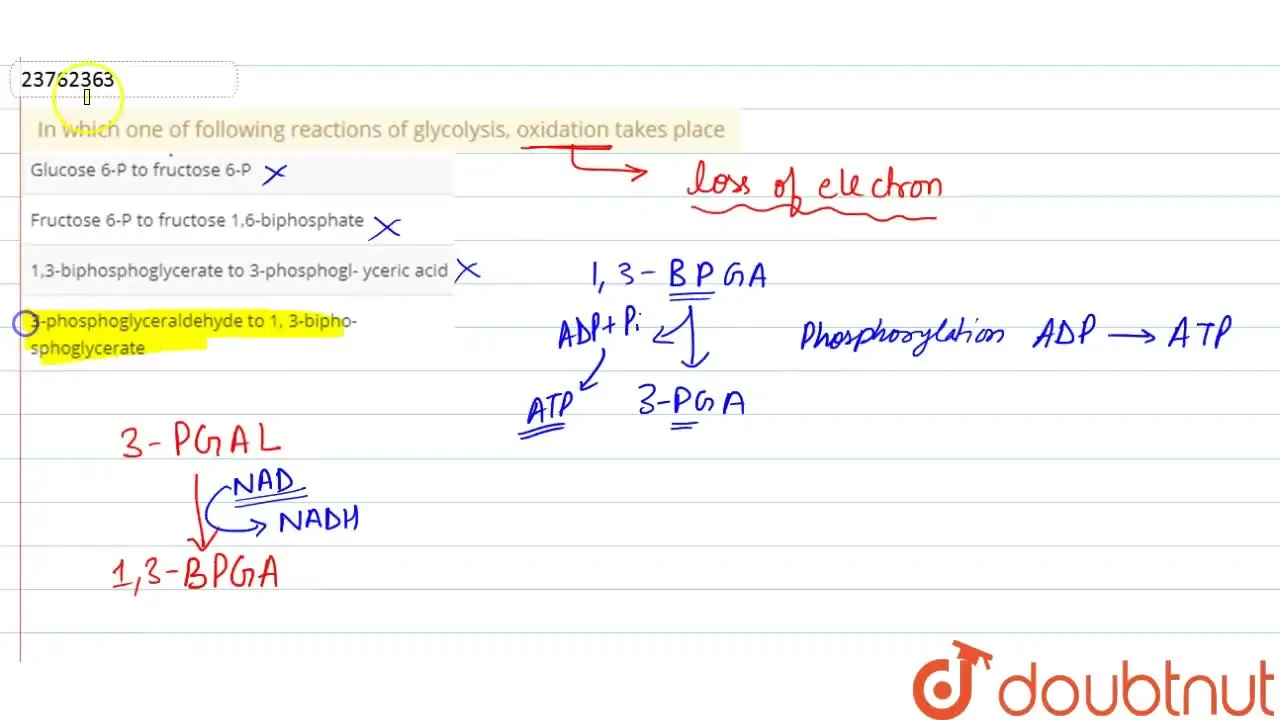 23762363
In which one of following reactions of glycolysis, oxidation takes place
Glucose 6-P to fructose 6-P
loss of electron
Fructose 6-P to fructose 1,6-biphosphate
1,3-biphosphoglycerate to 3-phosphogl- yceric acid
3-phosphoglyceraldehyde to 1, 3-bipho-
sphoglycerate
1,3-BPGA
ADP+Pi
Phosphorylation ADP → ATP
ATP
3-PGA
3-PGAL
NAD
NADH
1,3-BPGA
doubtnut